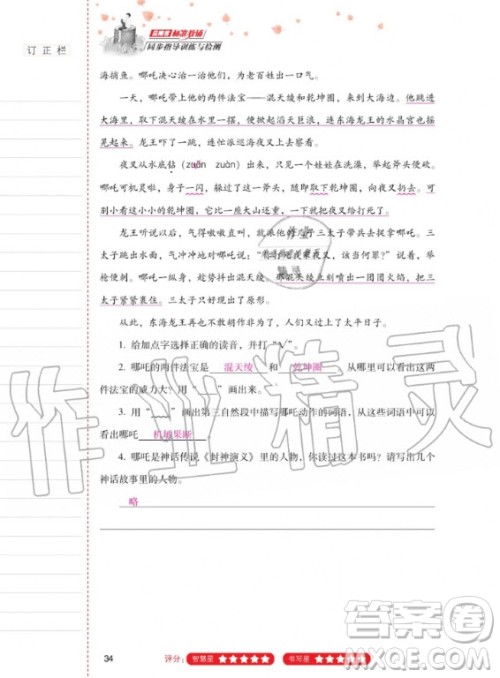 订正栏
同步指导训练与检测
海捕鱼。哪吒决心治一治他们,为老百姓出一口气。
一天,哪吒带上他的两件法宝——混天绫和乾坤圈,来到大海边。他跳进
大海里,取下混天绫在水里一摆,便掀起滔天巨浪,连东海龙王的水晶宫也
摇晃起来。龙王吓了一跳,连忙派巡海夜叉上去察看。
夜叉从水底钻(zuān zuàn)出来,只见一个娃娃在洗澡,举起斧头便砍。
哪吒可机灵啦,身子一闪,躲过了这一斧头,随即取下乾坤圈,向夜叉扔去。可
别小看这小小的乾坤圈,它比一座大山还重,一下子就把夜叉打死了。
龙王听说以后,气得嗷嗷直叫,就派他的儿子三太子带兵去捉拿哪吒。三
太子跳出水面,气冲冲地对哪吒说:“
我夜叉,该当何罪?”说着,
便枪刺哪吒。哪吒一纵身,趁势抖出混天绫。那混天绫喷出一团团火焰,把三
太子紧紧裹住。三太子只好现出了原形。
从此,东海龙王再也不敢胡作非为,人们又过上了太平日子。
1. 给加点字选择正确的读音,并打“√”。
2. 哪吒的两件法宝是 混天绫 和 乾坤圈 。从哪里可以看出这两
件法宝的威力大?用“——”画出来。
3. 用“﹏﹏”画出第三自然段中描写哪吒动作的词语,从这些词语中可以
看出哪吒 机敏果断
4. 哪吒是神话传说《封神演义》里的人物,你读过这本书吗?请写出几个
神话故事里的人物。
略
34 评分: 智慧星 ★★★★★ 书写星 ★★★★★
作业精灵
答案圈